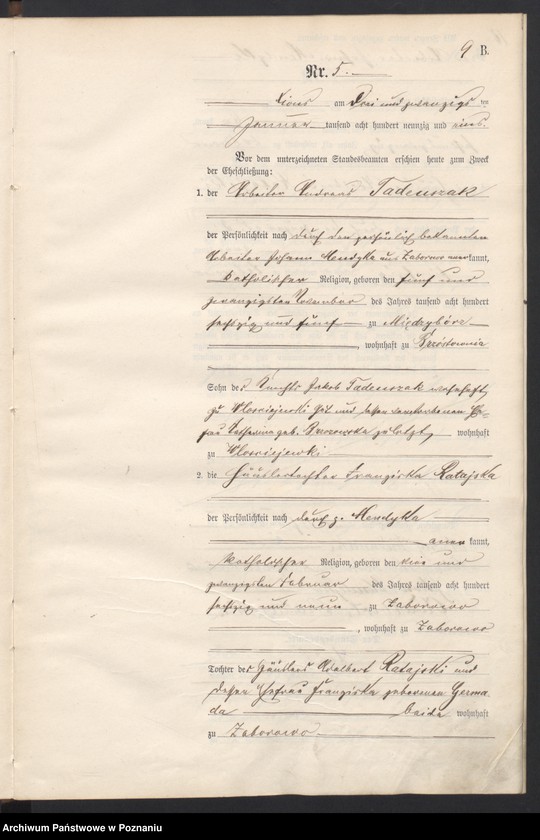 9 B.
Nr. 5.
Xions am Drei und zwanzigs ten
Januar tausend acht hundert neunzig und eins.
Vor dem unterzeichneten Standesbeamten erschien heute zum Zweck
der Eheschließung:
1. der Arbeiter Andreas Tadeuszak
der Persönlichkeit nach durch den persönlich bekannten
Arbeiter Johann Mendyka aus Zaborowo anerkannt,
katholischer Religion, geboren den fünf und
zwanzigsten November des Jahres tausend acht hundert
sechszig und fünf zu Międzyborz
, wohnhaft zu Brzóstownia
Sohn des Knechts Jakob Tadeuszak wohnhaft
zu Włosciejewki Gut und dessen verstorbenen Ehe-
frau Katharina geb. Brzozowska zuletzt wohnhaft
zu Włosciejewki
2. die Häuslertochter Franziska Ratajska
der Persönlichkeit nach durch p. Mendyka
aner kannt,
katholischer Religion, geboren den vier und
zwanzigsten Februar des Jahres tausend acht hundert
sechszig und neun zu Zaborowo
, wohnhaft zu Zaborowo
Tochter des Häuslers Adalbert Ratajski und
dessen Ehefrau Franziska geborenen Germa-
da beide wohnhaft
zu Zaborowo
Archiwum Państwowe w Poznaniu